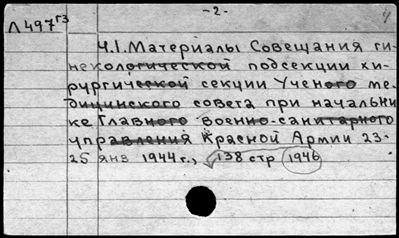 -2-
4
Л497гз
Ч.I. Материалы Совещания ги-
некологической подсекции хи-
рургической секции Ученого ме-
дицинского совета при начальни
ке Главного военно-санитарного
управления Красной Армии 23-
25 янв 1944г., 138 стр 1946